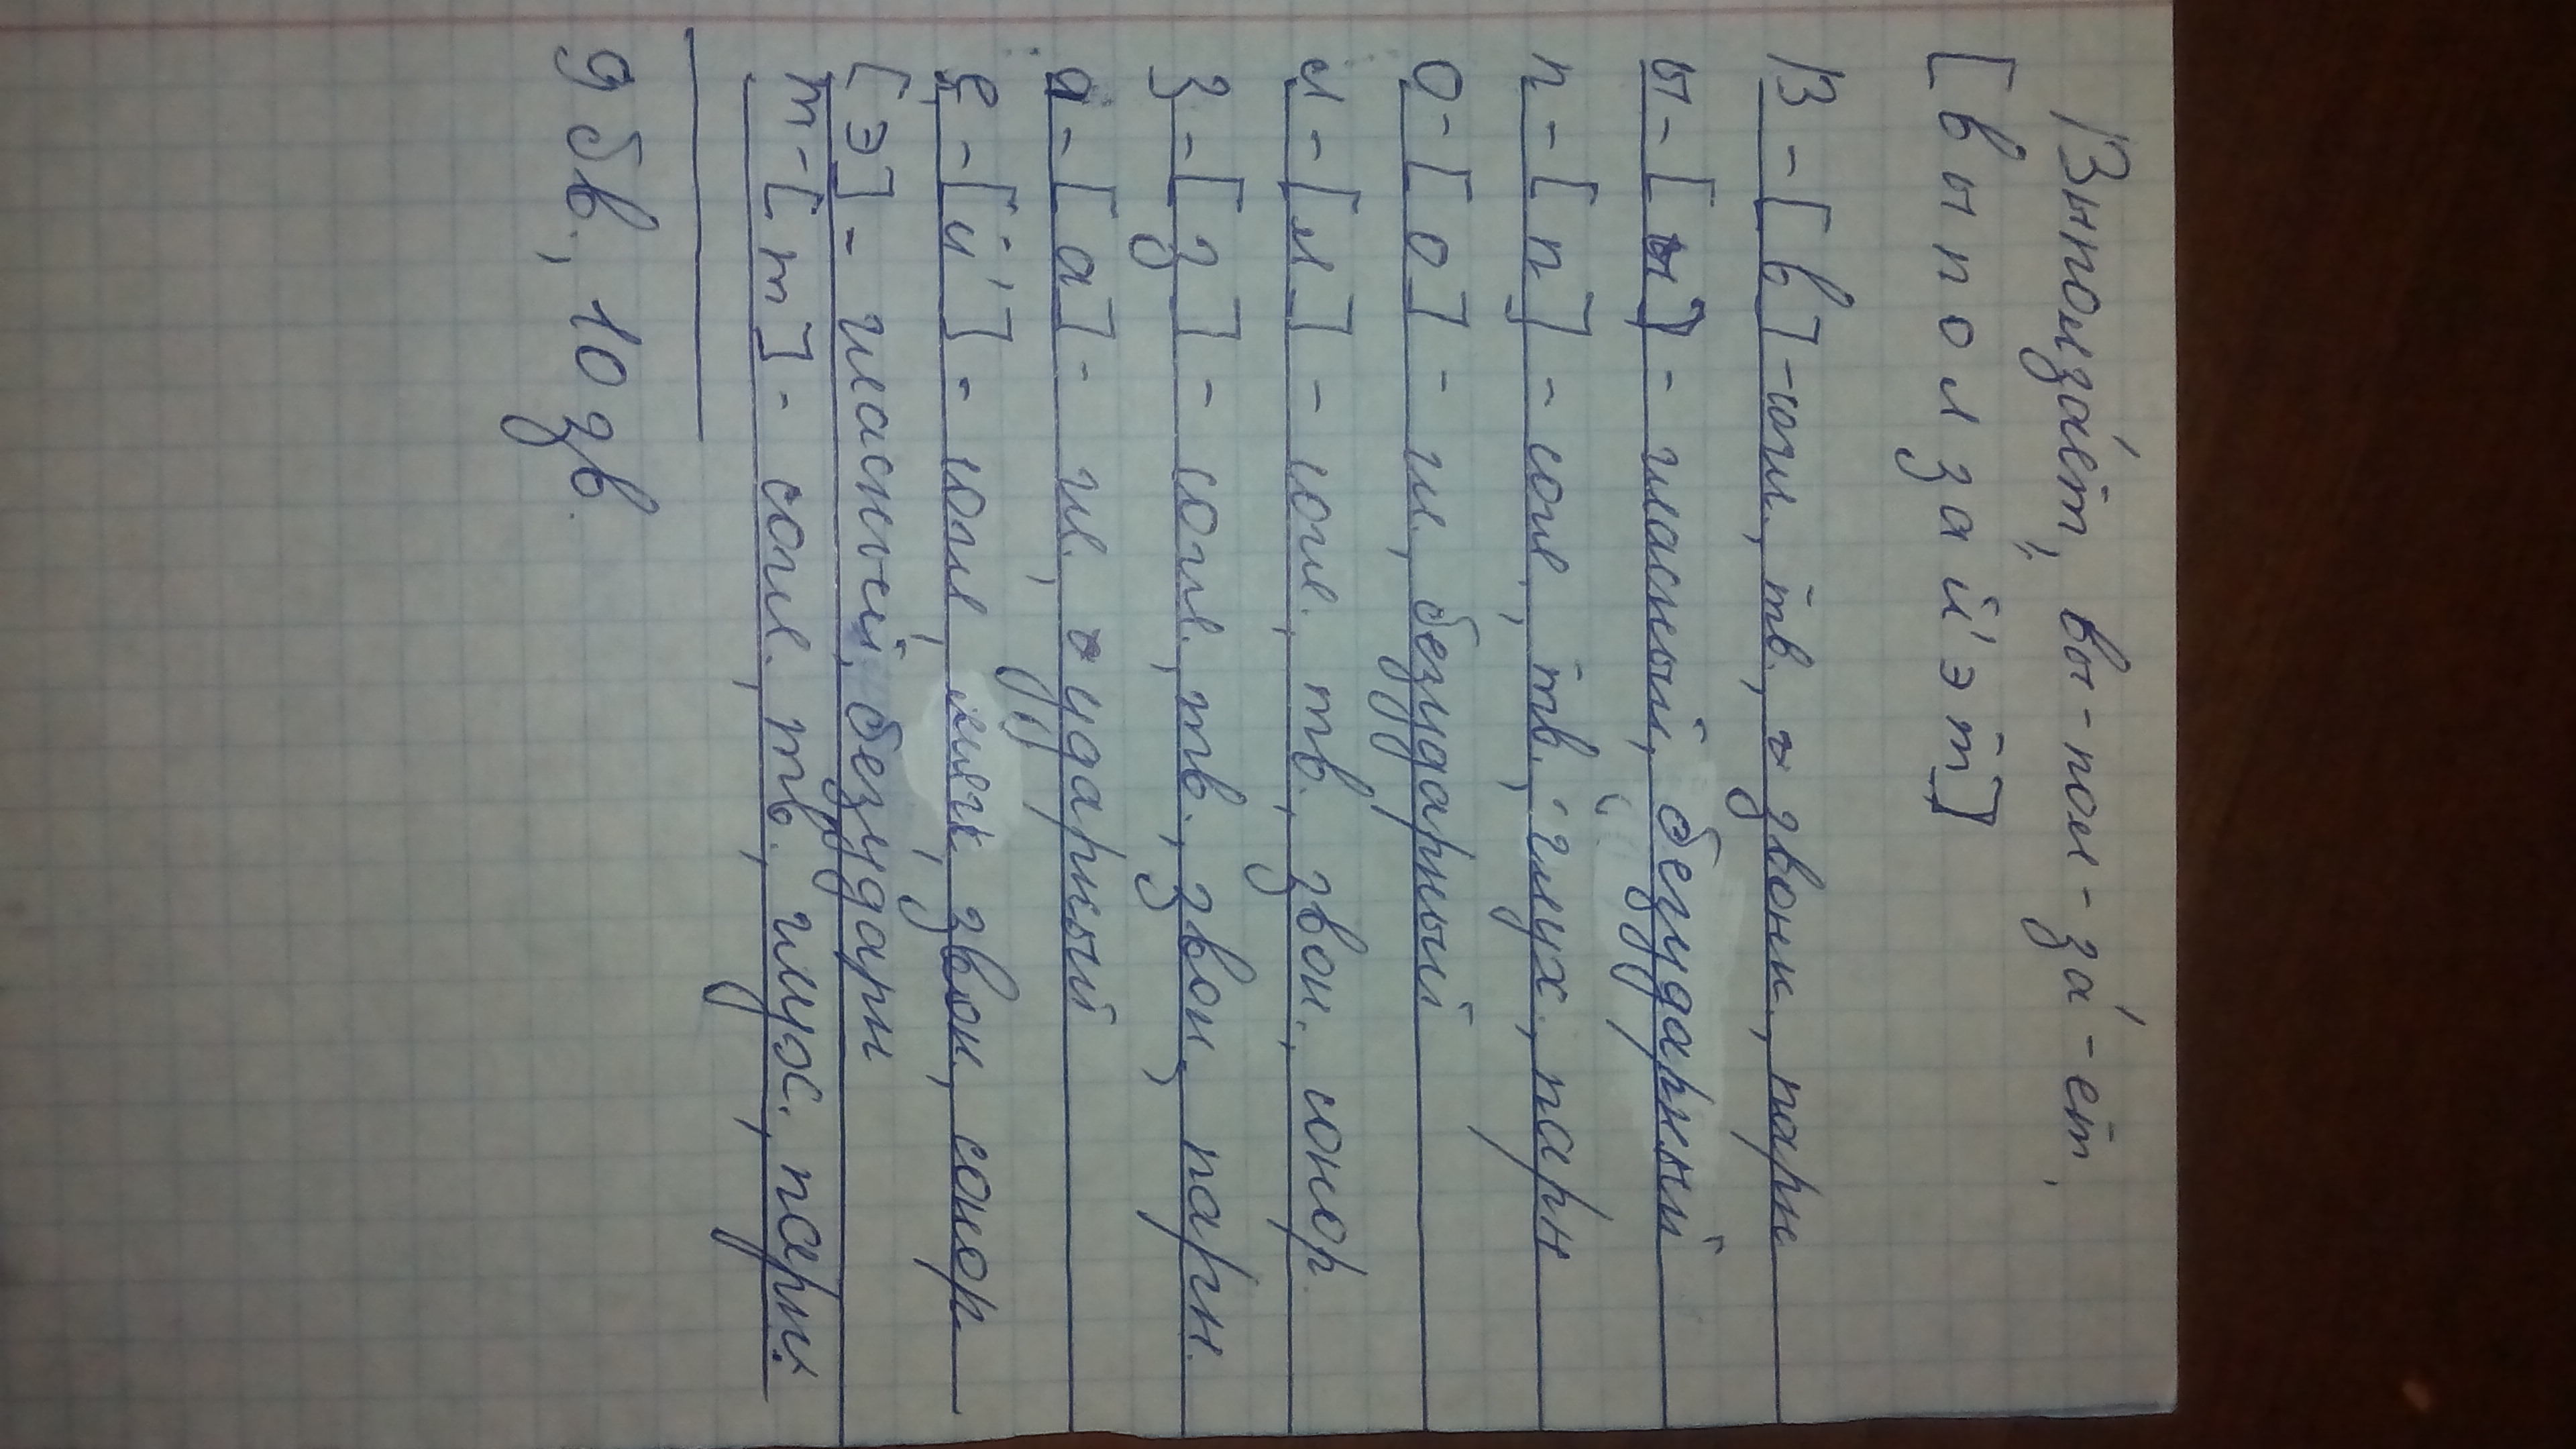 Выползáет, вы-пол-зá-ет,
[выползай'эт]
В - [в] - согл., тв., звонк., парн
ы - [ы] - гласный, безударный
п - [п] - согл., тв., глух., парн
о - [о] - гл., безударный
л - [л] - согл., тв., звон., сонор.
з - [з] - согл., тв., звон., парн.
а - [а] - гл., ударный
е - [й'] - согл., мягк, звон, сонор
[э] - гласный, безударн
т - [т] - согл., тв., глух., парн.
9 бв., 10 зв.